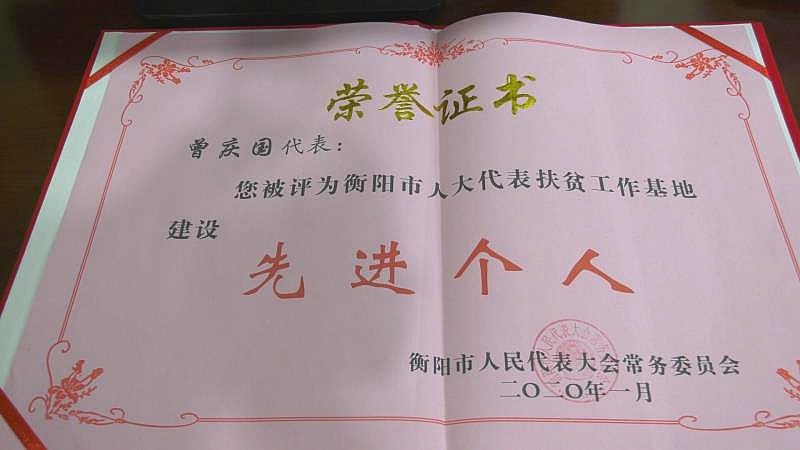 荣誉证书
曾庆国代表：
您被评为衡阳市人大代表扶贫工作基地
建设
先进个人
衡阳市人民代表大会常务委员会
二〇二〇年一月